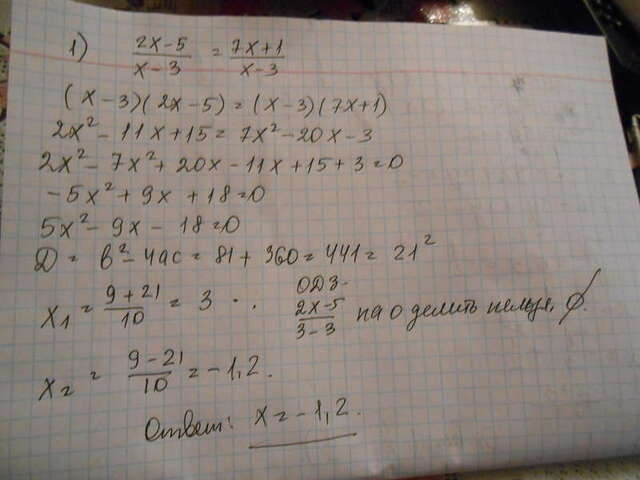 1) (2x-5)/(x-3) = (7x+1)/(x-3)
(x-3)(2x-5)=(x-3)(7x+1)
2x²-11x+15=7x²-20x-3
2x²-7x²+20x-11x+15+3=0
-5x²+9x+18=0
5x²-9x-18=0
D = b²-4ac=81+360=441=21²
x₁=(9+21)/10=3
ОДЗ.
(2x-5)/(3-3) на 0 делить нельзя, ∅.
x₂=(9-21)/10=-1,2.
Ответ: x=-1,2.